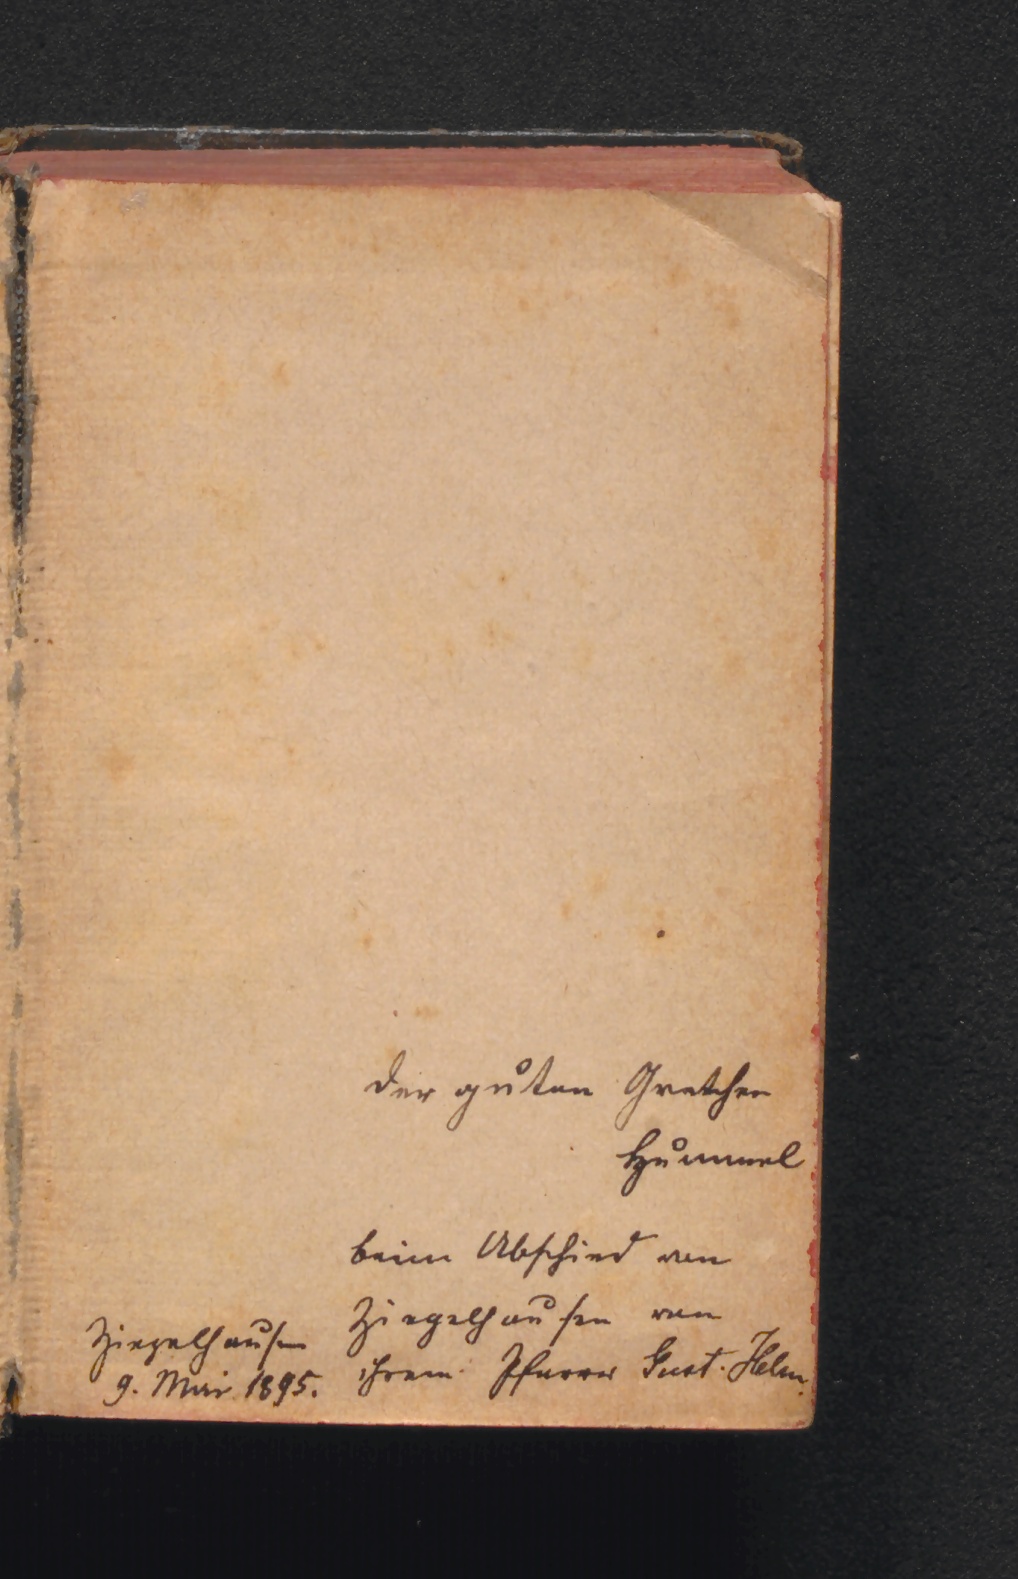 Der guten Gretchen
Hummel
beim Abschied von
Ziegelhausen von
ihrem Pfarrer Gust. Helm.
Ziegelhausen
9. Mai 1895.